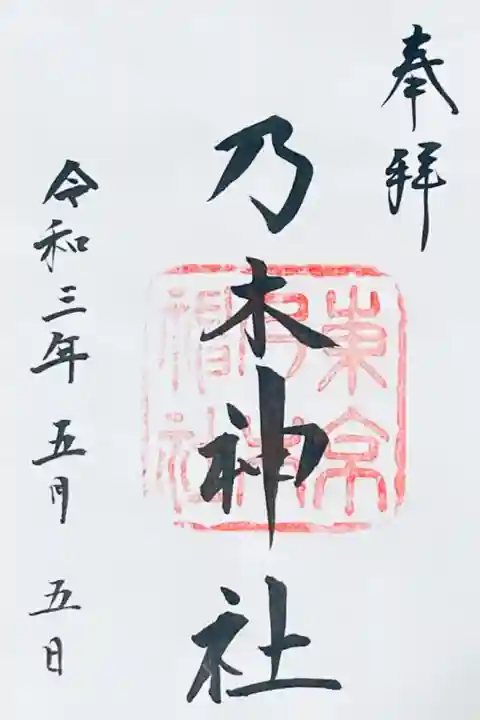 奉拝
乃木神社
東京
乃木
神社
令和三年 五月 五日